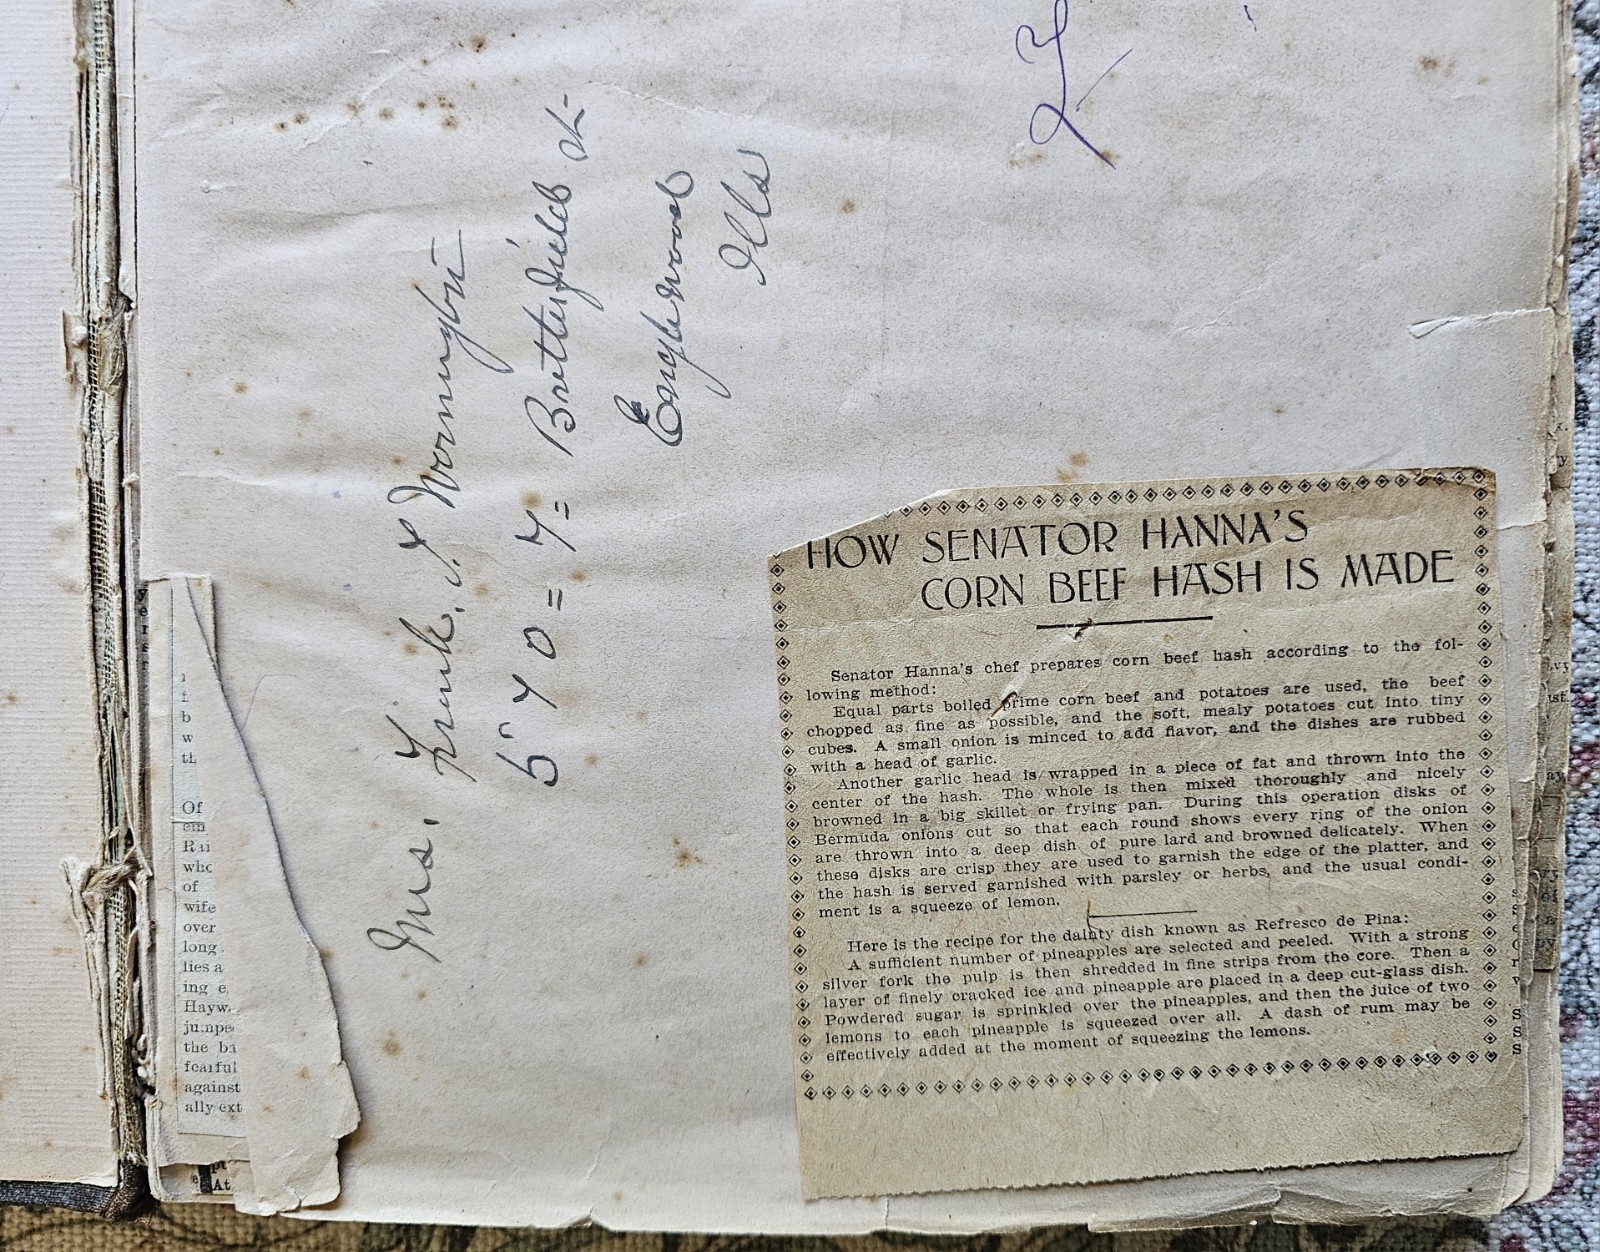 Mrs. Frank. J.
5 4 0 = 7 = Butterfield St
Englewood
Ills
HOW SENATOR HANNA'S
CORN BEEF HASH IS MADE
Senator Hanna's chef prepares corn beef hash according to the fol-
lowing method:
Equal parts boiled prime corn beef and potatoes are used, the beef
chopped as fine as possible, and the soft, mealy potatoes cut into tiny
cubes. A small onion is minced to add flavor, and the dishes are rubbed
with a head of garlic.
Another garlic head is wrapped in a piece of fat and thrown into the
center of the hash. The whole is then mixed thoroughly and nicely
browned in a big skillet or frying pan. During this operation disks of
Bermuda onions cut so that each round shows every ring of the onion
are thrown into a deep dish of pure lard and browned delicately. When
these disks are crisp they are used to garnish the edge of the platter, and
the hash is served garnished with parsley or herbs, and the usual condi-
ment is a squeeze of lemon.
Here is the recipe for the dainty dish known as Refresco de Pina:
A sufficient number of pineapples are selected and peeled. With a strong
silver fork the pulp is then shredded in fine strips from the core. Then a
layer of finely cracked ice and pineapple are placed in a deep cut-glass dish.
Powdered sugar is sprinkled over the pineapples, and then the juice of two
lemons to each pineapple is squeezed over all. A dash of rum may be
effectively added at the moment of squeezing the lemons.
b
w
th
Of
who
of
wife
over
long
lies a
ing e
Hayw
jumpe
the ba
fearful
against
ally ext
pt
At